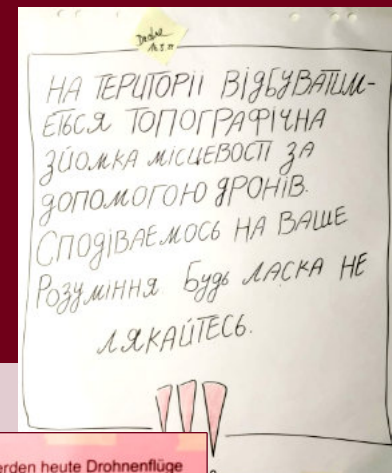 НА ТЕРИТОРІЇ ВІДБУВАТИМ-
ЕТЬСЯ ТОПОГРАФІЧНА
ЗЙОМКА МІСЦЕВОСТІ ЗА
ДОПОМОГОЮ ДРОНІВ.
СПОДІВАЄМОСЬ НА ВАШЕ
РОЗУМІННЯ. БУДЬ ЛАСКА НЕ
ЛЯКАЙТЕСЬ.
!!!
erden heute Drohnenflüge